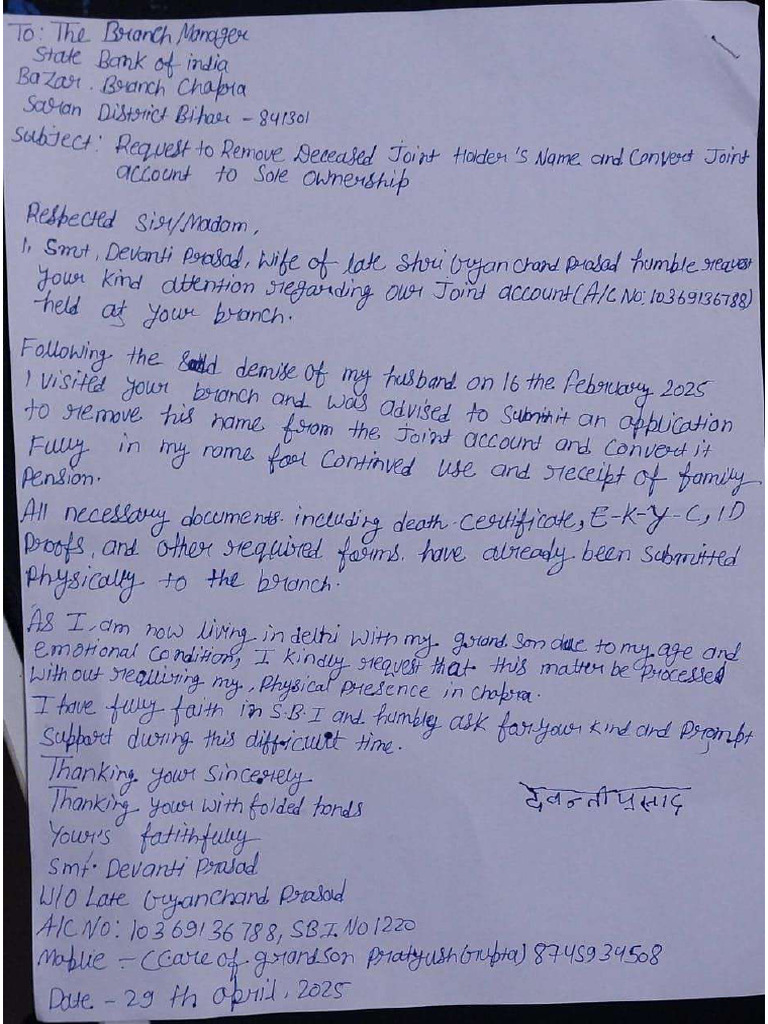 To: The Branch Manager
State Bank of india
Bazar. Branch Chapra
Saran District Bihar - 841301
Subject: Request to Remove Deceased Joint Holder's Name and Convert Joint
account to Sole ownership
Respected Sir/Madam,
I, Smt, Devanti Prasad, Wife of late Shri Gyanchand Prasad humble request
your kind attention regarding our Joint account (A/C No: 10369136788)
held at your branch.
Following the sad demise of my husband on 16 the february 2025
I visited your branch and was advised to Submit an application
to remove his name from the Joint account and convert it
Fully in my name for continued use and receipt of family
Pension.
All necessary documents. including death certificate, E-K-Y-C, ID
Proofs, and other required forms. have already been submitted
Physically to the branch.
As I am now living in delhi with my grand son due to my age and
emotional condition, I kindly request that this matter be processed
without requiring my, Physical presence in chapra.
I have fully faith in S.B.I and humbly ask for your kind and prompt
Support during this difficult time.
Thanking your Sincerely
देवन्ती प्रसाद
Thanking your with folded honds
Your's fatithfully
Smt. Devanti Prasad
W/O Late Gyanchand Prasad
A/C NO: 10369136788, SBI. No 1220
Moblie - CCare of grandson Pratyush Gupta) 8745934508
Date - 29 th april. 2025